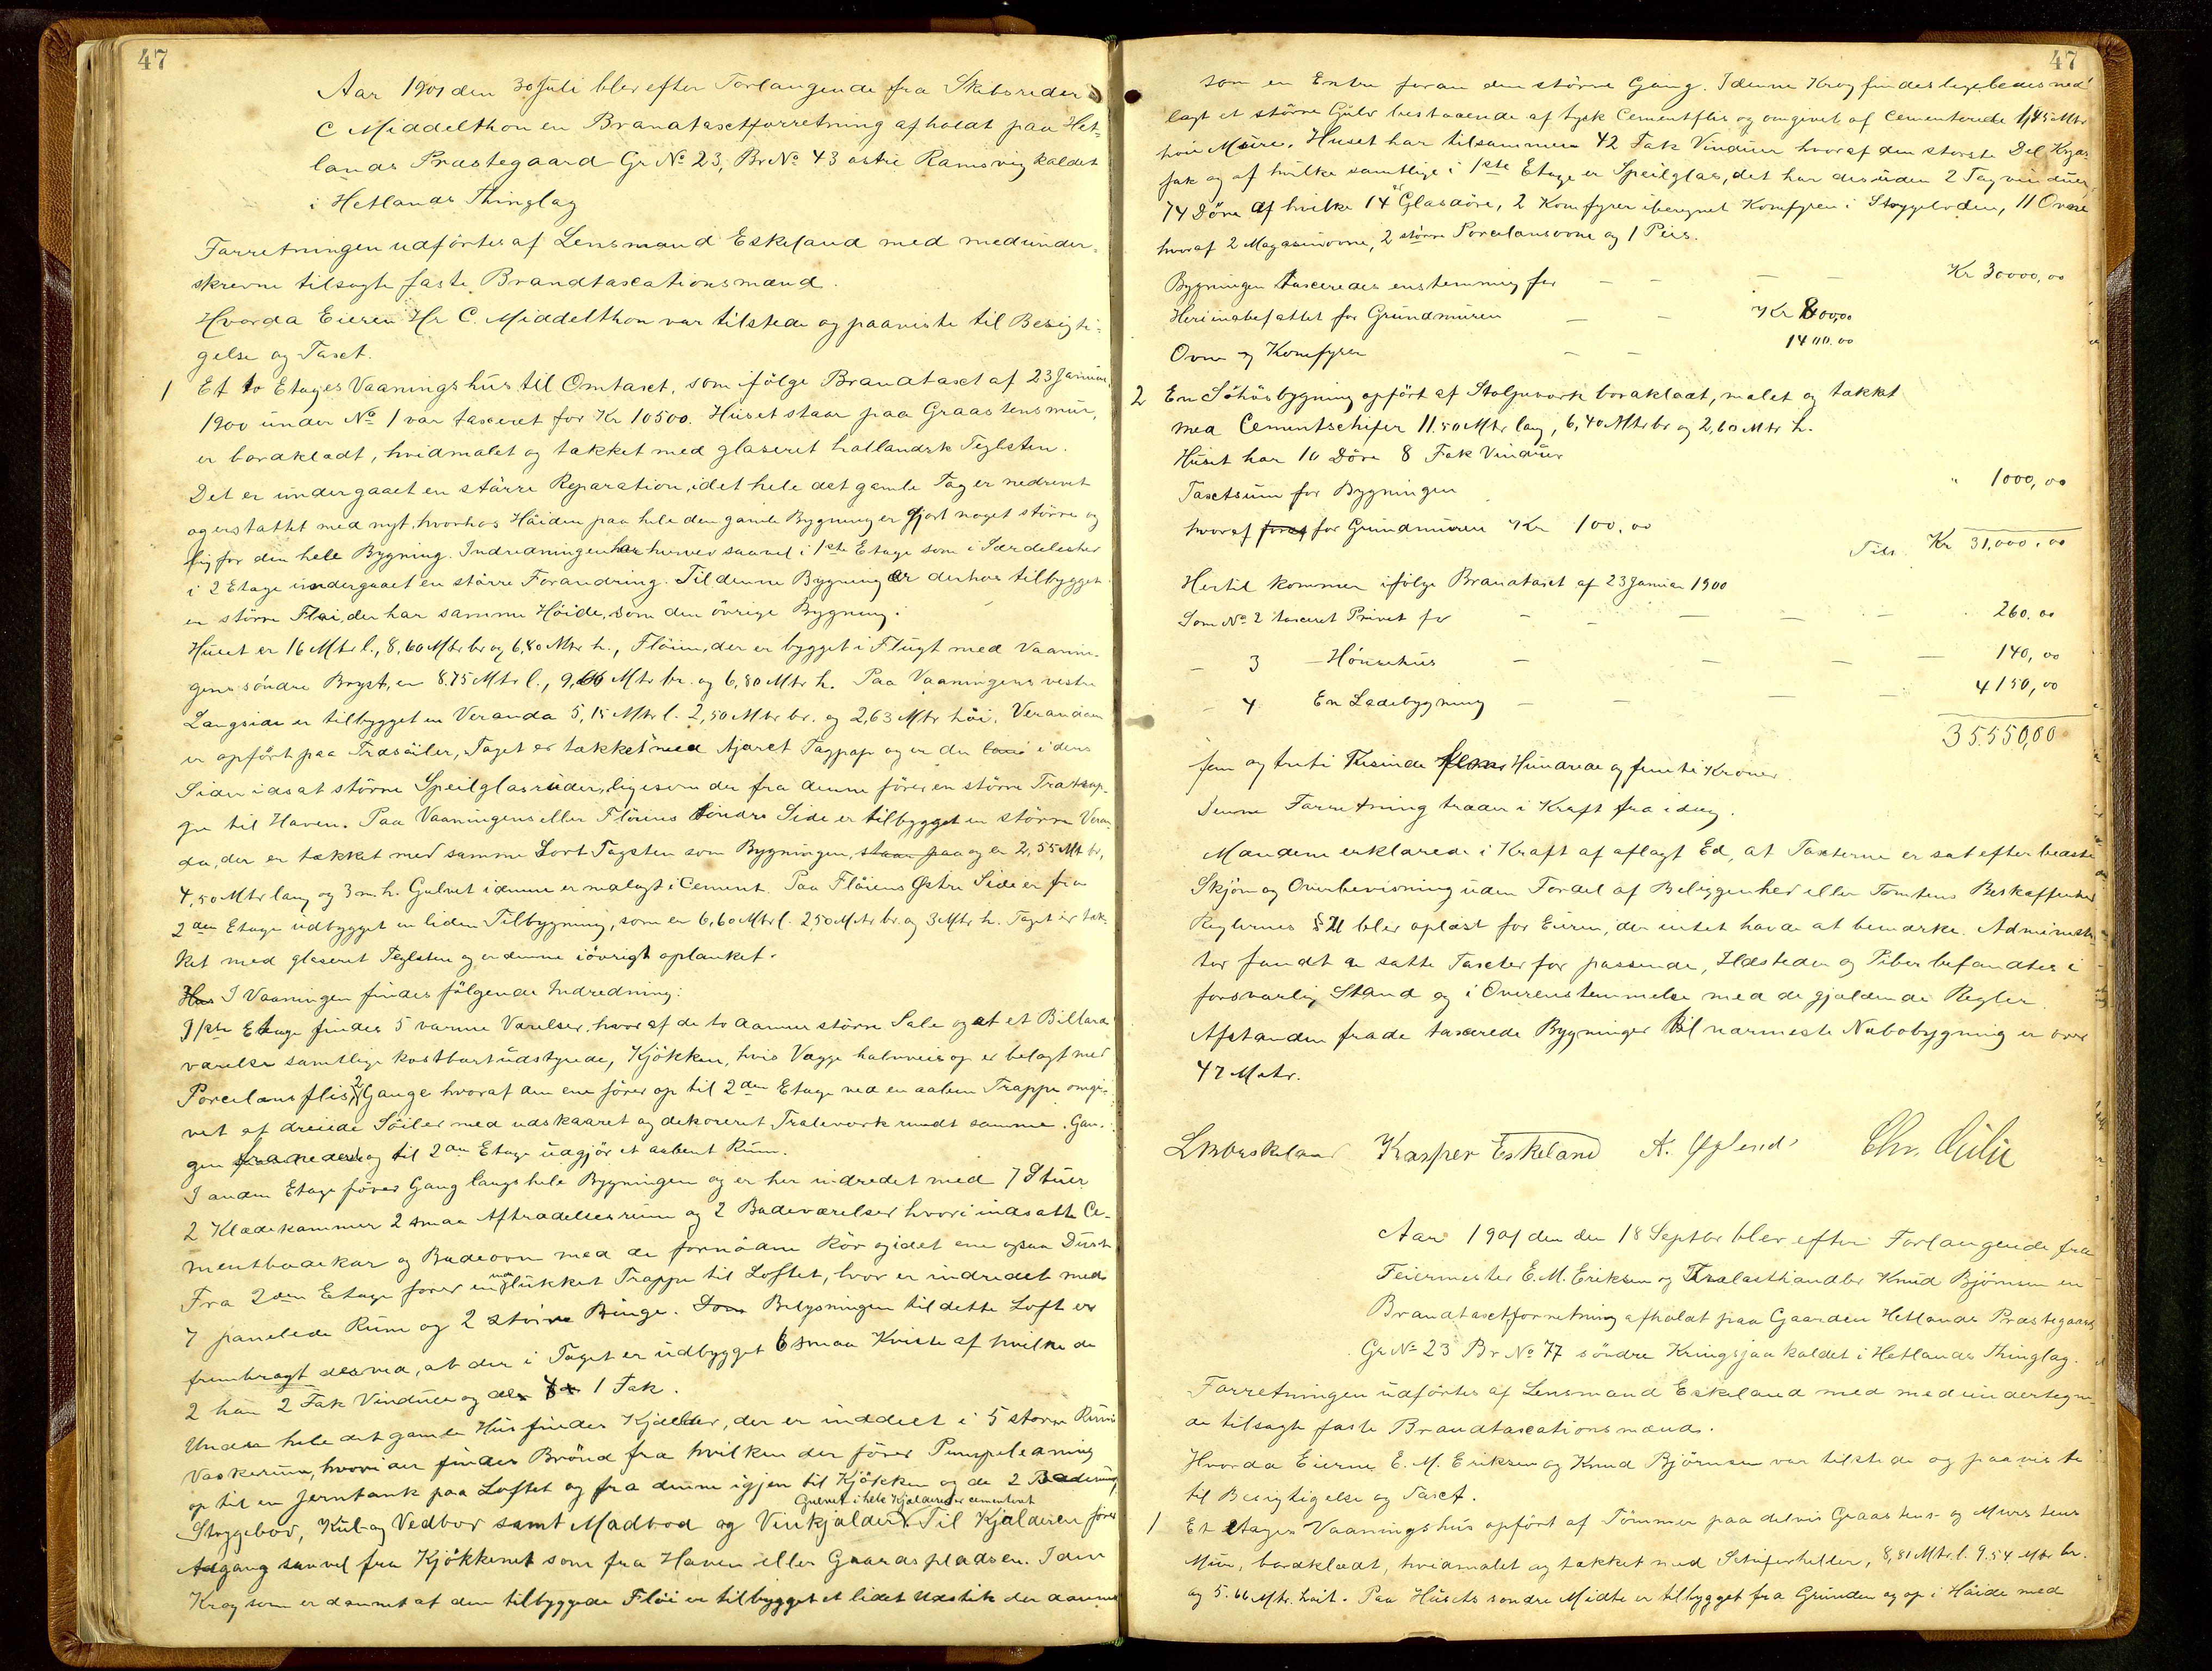 47
Aar 1901 den 30 Juli blev efter Forlangende fra Skibsreder
C Middelthon en Brandtaxtforretning afholdt paa Het-
lands Præstegaard Gr No 23, Br No 43 østre Ramsvig kaldet
i Hetlands Thinglag
Forretningen udførtes af Lensmand Eskeland med medunder-
skrevne tilsagte faste Brandtaxationsmænd.
Hvorda Eieren Hr C. Middelthon var tilstede og paaviste til Besigti-
gelse og Taxt.
1 Et to Etages Vaaningshus til Omtaxt, som ifølge Brandtaxt af 23 Januar
1900 under No 1 var taxeret for Kr 10500. Huset staar paa Graastensmur,
er bordklædt, hvidmalet og tækket med glaseret hollandsk Teglsten.
Det er undergaaet en større Reparation, idet hele det gamle Tag er nedrevet
og erstattet med nyt, hvorhos Høiden paa hele den gamle Bygning er gjort noget større og
lig for den hele Bygning. Indredningen har herved saavel i 1ste Etage som i Særdeleshed
i 2 Etage undergaaet en større Forandring. Til denne Bygning er derhos tilbygget
en større Fløi, der har samme Høide, som den øvrige Bygning.
Huset er 16 Mtr l., 8,60 Mtr br og 6,80 Mtr h., Fløien, der er bygget i Flugt med Vaanin-
gens søndre Bryst, er 8.75 Mtr l., 9,66 Mtr br. og 6,80 Mtr h. Paa Vaaningens vestre
Langside er tilbygget en Veranda 5,15 Mtr l. 2,50 Mtr br. og 2,63 Mtr høi. Verandaen
er opført paa Træsøiler, Taget er tækket med tjæret Tagpap og er der i dens
Sider idsat større Speilglasruder, ligesom der fra denne fører en større Trætrap-
pe til Haven. Paa Vaaningens eller Fløiens søndre Side er tilbygget en større Veran-
da, der er tækket med samme Sort Tagsten som Bygningen, staar paa og er 2,55 Mt br,
4,50 Mtr lang og 3 m. h. Gulvet i denne er nedlagt i Cement. Paa Fløiens Østre Side er fra
2den Etage udbygget en liden Tilbygning, som er 6,60 Mtr l 250 Mtr br. og 3 Mtr h. Taget er tæk-
ket med glaseret Teglsten og er denne iøvrigt oplanket.
Hus I Vaaningen findes følgende Indredning:
I 1ste Etage findes 5 varme Værelser, hvoraf de to danner større Sale og et et Billard
værelse samtlige kostbart udstyrede, Kjøkken, hvis Vægge halvveis op er belagt med
Porcelænsflis, 2 Gange hvoraf den ene fører op til 2den Etage ved en aaben Trappe omgi-
vet af dreiede Søiler med udskaaret og dekoreret Traleværk rundt samme. Gan-
gen fra neden og til 2den Etage udgjør et aabent Rum.
I anden Etage fører Gang langs hele Bygningen og er her indredet med 7 Stuer
2 Klædekammer 2 smaa Aftrædelsesrum og 2 Badeværelser hvori indsatte Ce-
mentbadekar og Badeovn med de fornødne Rør og i det ene ogsaa Dusch
Fra 2den Etage fører en lukket Trappe til Loftet, hvor er indredet med
7 panelede Rum og 2 større Binge. Som Belysningen til dette Loft er
frembragt desved, at der i Taget er udbygget 6 smaa Kviste af hvilke de
2 har 2 Fak Vinduer og de 4 1 Fak.
Under hele det gamle Hus findes Kjælder, der er inddelt i 5 større Rum
Vaskerum, hvori der findes Brønd fra hvilken der fører Pumpeledning
op til en Jerntank paa Loftet og fra denne igjen til Kjøkken og de 2 Baderum,
Gulvet i hele Kjælderen er cementeret
Stryggebod, Kul- og Vedbod samt Madbod og Vinkjælder. Til Kjælderen fører
Adgang saavel fra Kjøkkenet som fra Haven eller Gaardspladsen. I den
Krog som er dannet af den tilbyggede Fløi er tilbygget et lidet Udstik der danner
47
som en Entre foran den større Gang. I denne Krog findes ligeledes ned
lagt et større Gulv bestaaende af tysk Cementflis og omgivet af cementerede 1,45 Mtr
høie Mure. Huset har tilsammen 42 Fak Vinduer hvoraf den største Del Kryds
fak og af hvilke samtlige i 1ste Etage er Speilglas, det har desuden 2 Tagvinduer,
74 Døre af hvilke 14 er Glasdøre, 2 Komfyrer iberegnet Komfyren i Stryggeboden, 11 Ovne
hvoraf 2 Magasinovne, 2 større Porcelænsovne og 1 Peis.
Bygningen taxeredes enstemmig for – – – – Kr 30000,00
Heri indbefattet for Grundmuren – – Kr 800,00
Ovne og Komfyrer – – 1400.00
2 En Søhusbygning opført af Stolpeværk bordklædt, malet og tækket
med Cementschifer 11.50 Mtr lang, 6,40 Mtr br og 2,60 Mtr h.
Huset har 10 Døre 8 Fak Vinduer
Taxtsum for Bygningen " 1000,00
hvoraf for Grundmuren Kr 100.00
Tils. Kr 31,000.00
Hertil kommer ifølge Brandtaxt af 23 Januar 1900
Som No 2 taxeret Privet for – – – – – 260.00
– 3 – Hønsehus – – – – 140,00
– 4 En Ladebygning – – – – 4150,00
35.550,00
fem og treti Tusinde fem Hundrede og femti Kroner.
Denne Forretning træder i Kraft fra idag.
Mændene erklærede i Kraft af aflagt Ed, at Taxterne er sat efter bedste
Skjøn og Overbevisning uden Fordel af Beliggenhed eller Tomtens Beskaffenhed
Reglernes § 21 blev oplæst for Eieren, der intet havde at bemærke. Administra
tor fandt de satte Taxter for passende, Ildsteder og Piber befandtes i
forsvarlig Stand og i Overensstemmelse med de gjældende Regler.
Afstanden fra de taxerede Bygninger til nærmeste Nabobygning er over
47 Metr.
Kasper Eskeland
Aar 1901 den den 18 Septbr blev efter Forlangende fra
Feiermester E. M. Eriksen og Trælasthandler Knud Bjørnsen en
Brandtaxtforretning afholdt paa Gaarden Hetlands Præstegaard
Gr No 23 Br No 77 søndre Kringsjaa kaldet i Hetlands Thinglag.
Forretningen udførtes af Lensmand Eskeland med medundertegne-
de tilsagte faste Brandtaxationsmænd.
Hvorda Eierne E. M. Eriksen og Knud Bjørnsen var tilstede og paaviste
til Besigtigelse og Taxt.
1 Et etages Vaaningshus opført af Tømmer paa delvis Graastens- og Murstens
Mur, bordklædt, hvidmalet og tækket med Schiferheller, 8,81 Mtr. l. 9.54 Mtr br.
og 5.66 Mtr. høit. Paa Husets søndre Midte er tilbygget fra Grunden og op i Høide med